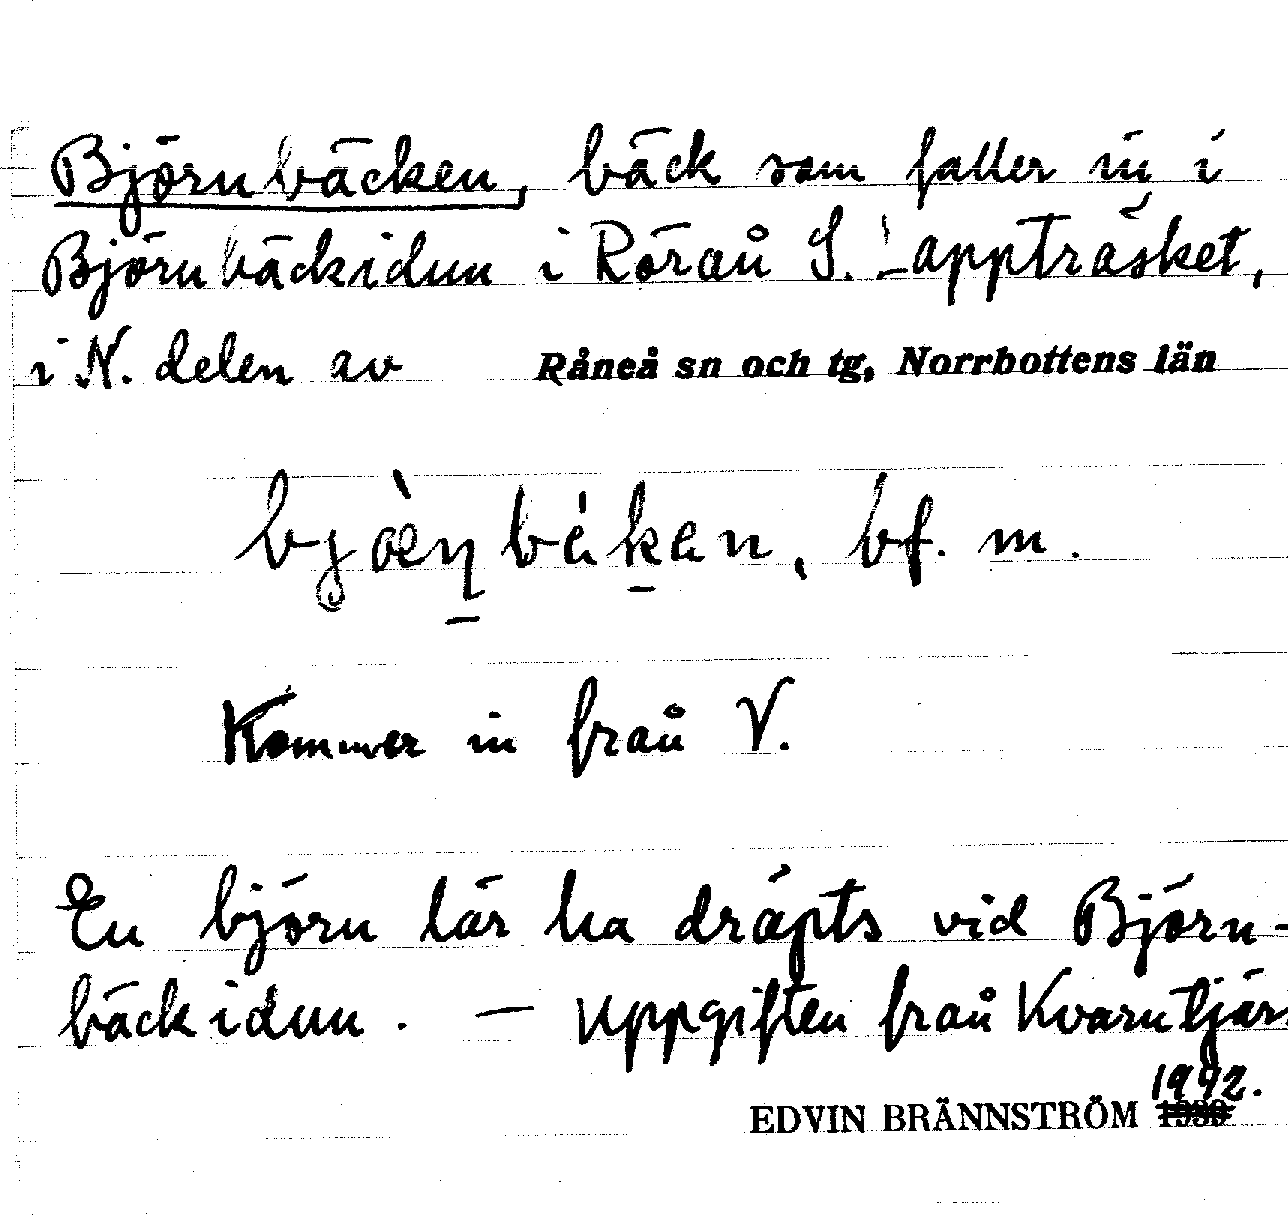 Björnbäcken, bäck som faller in i
Björnbäckidun i Rörån S. Lappträsket,
i N. delen av Råneå sn och tg, Norrbottens län
bf. m.
Kommer in från V.
En björn lär ha dräpts vid Björn-
bäckidun. — Uppgiften från Kvarntjärn
1942.
EDVIN BRÄNNSTRÖM 1930